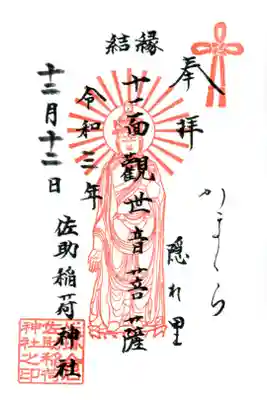 結縁
奉拝
かまくら
隠れ里
十一面観世音菩薩
令和三年
十二月十二日
佐助稲荷神社
佐助稲荷
神社之印